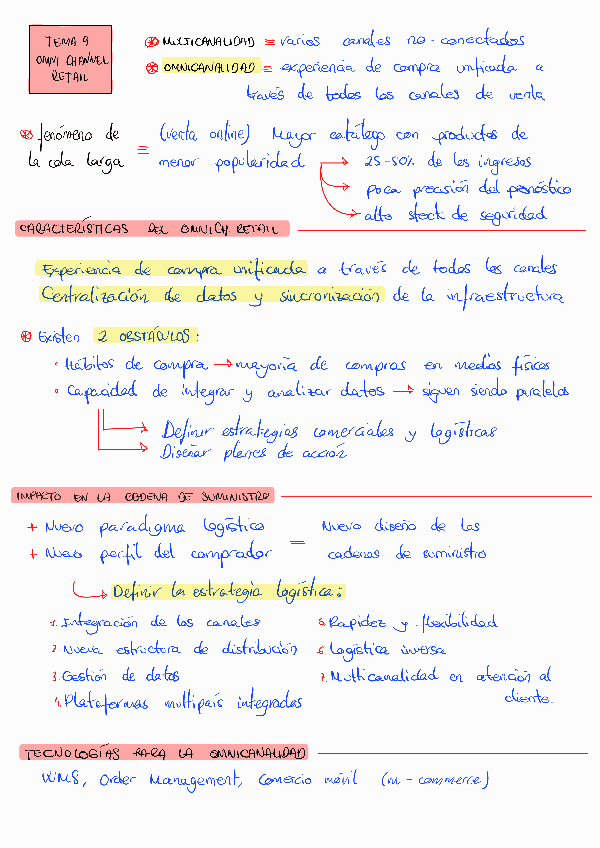 TEMA 9
OMNI CHANNEL
RETAIL
MULTICANALIDAD = varios canales no-conectados
OMNICANALIDAD = experiencia de compra unificada a
través de todos los canales de venta
fenómeno de
la cola larga
= (venta online) Mayor catálogo con productos de
menor popularidad → 25-50% de los ingresos
→ poca precisión del pronóstico
→ alto stock de seguridad
CARACTERÍSTICAS DEL OMNICH. RETAIL
Experiencia de compra unificada a través de todos los canales
Centralización de datos y sincronización de la infraestructura
Existen 2 OBSTÁCULOS:
· Hábitos de compra → mayoría de compras en medios físicos
· Capacidad de integrar y analizar datos → siguen siendo paralelos
→ Definir estrategias comerciales y logísticas
→ Diseñar planes de acción
IMPACTO EN LA CADENA DE SUMINISTRO
+ Nuevo paradigma logístico
+ Nuevo perfil del comprador
= Nuevo diseño de las
cadenas de suministro
→ Definir la estrategia logística:
1. Integración de los canales
2. Nueva estructura de distribución
3. Gestión de datos
4. Plataformas multipaís integradas
5. Rapidez y flexibilidad
6. Logística inversa
7. Multicanalidad en atención al
cliente.
TECNOLOGÍAS PARA LA OMNICANALIDAD
WMS, Order Management, Comercio móvil (m-commerce)